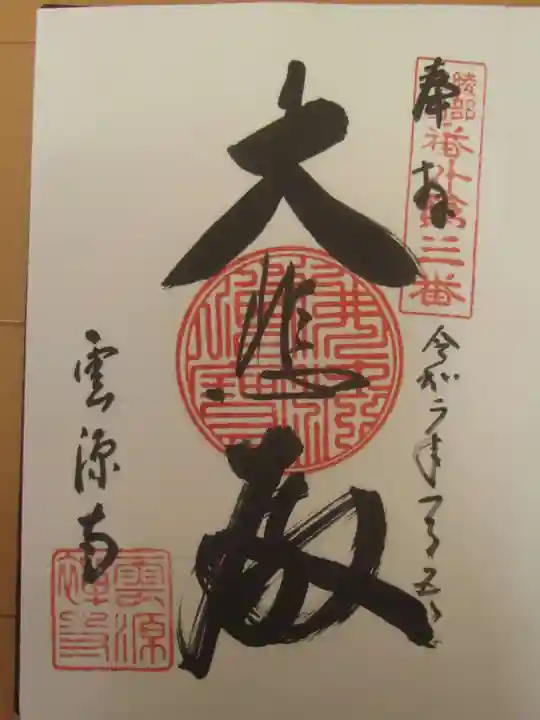 綾部
番外第三番
奉拝
令和二年一月五日
大悲殿
雲源寺
雲源禅寺